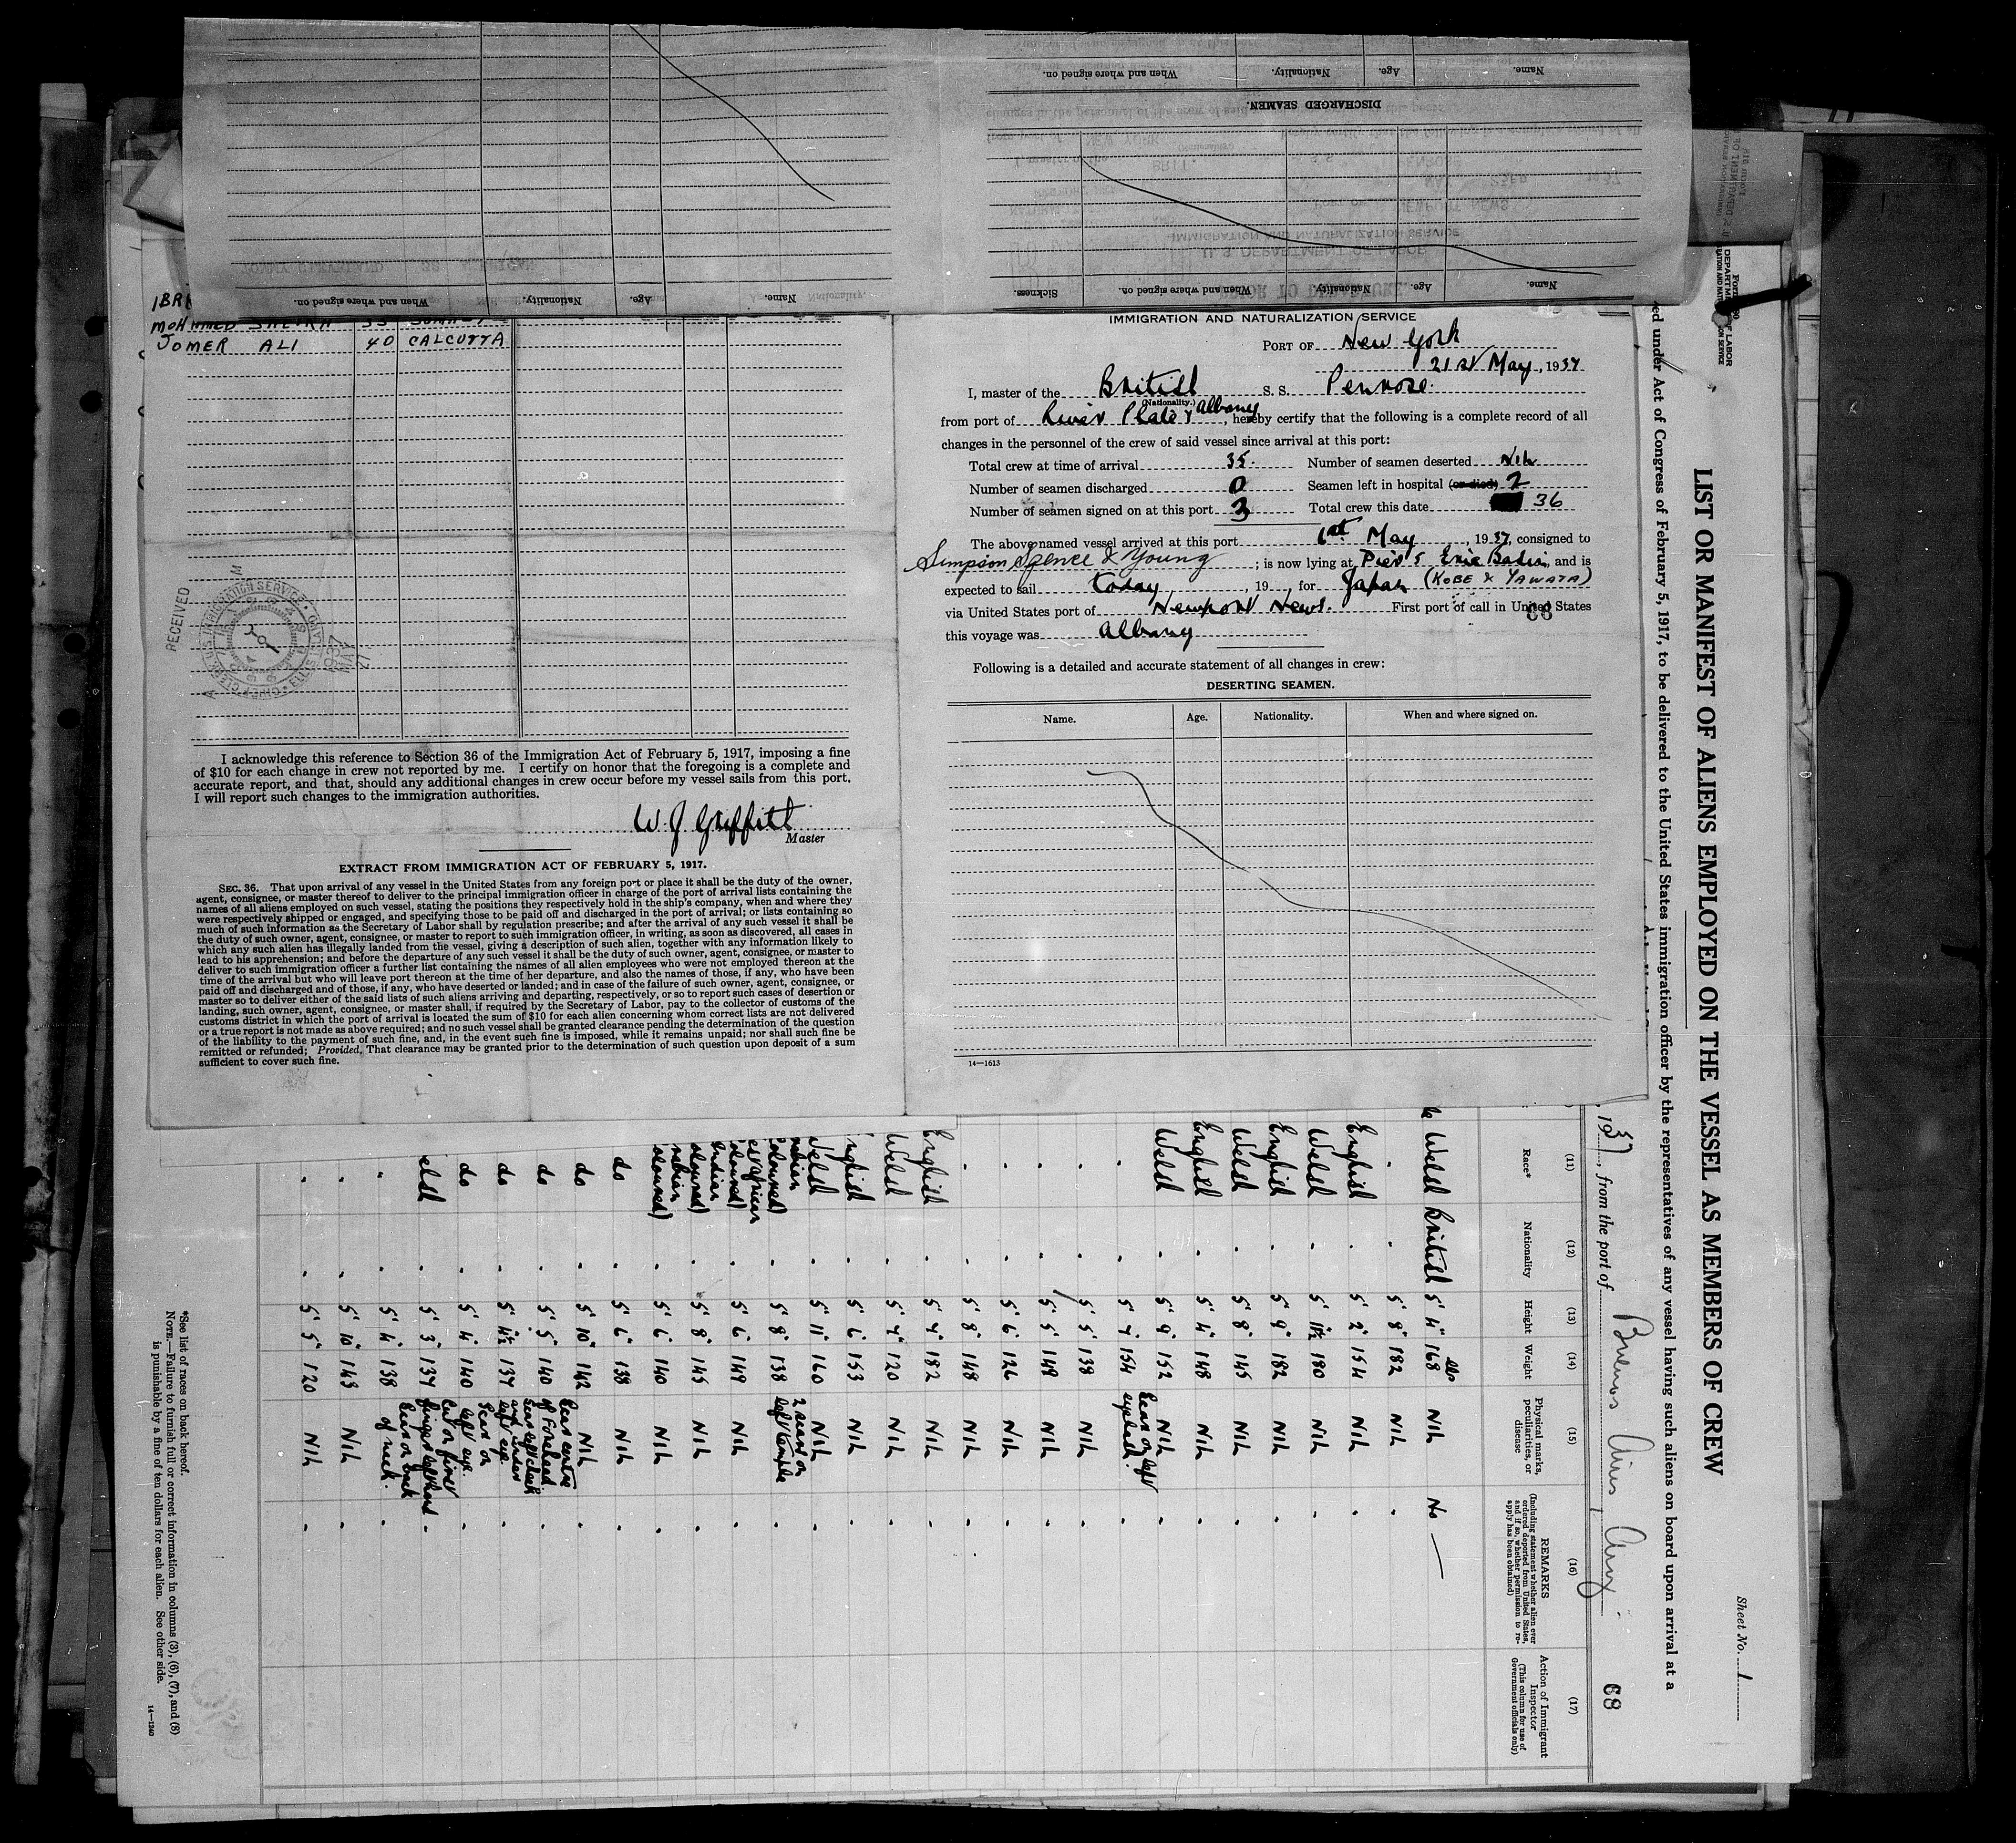 Name.
Age.
Nationality.
When and where signed on.
DISCHARGED SEAMEN.
Name.
Age.
Nationality.
When and where signed on.
Sickness.
Name.
Age.
Nationality.
When and where signed on.
JOMER ALI 40 CALCUTTA
RECEIVED
I acknowledge this reference to Section 36 of the Immigration Act of February 5, 1917, imposing a fine
of $10 for each change in crew not reported by me. I certify on honor that the foregoing is a complete and
accurate report, and that, should any additional changes in crew occur before my vessel sails from this port,
I will report such changes to the immigration authorities.
W. J Griffith
Master
EXTRACT FROM IMMIGRATION ACT OF FEBRUARY 5, 1917.
SEC. 36. That upon arrival of any vessel in the United States from any foreign port or place it shall be the duty of the owner,
agent, consignee, or master thereof to deliver to the principal immigration officer in charge of the port of arrival lists containing the
names of all aliens employed on such vessel, stating the positions they respectively hold in the ship's company, when and where they
were respectively shipped or engaged, and specifying those to be paid off and discharged in the port of arrival; or lists containing so
much of such information as the Secretary of Labor shall by regulation prescribe; and after the arrival of any such vessel it shall be
the duty of such owner, agent, consignee, or master to report to such immigration officer, in writing, as soon as discovered, all cases in
which any such alien has illegally landed from the vessel, giving a description of such alien, together with any information likely to
lead to his apprehension; and before the departure of any such vessel it shall be the duty of such owner, agent, consignee, or master to
deliver to such immigration officer a further list containing the names of all alien employees who were not employed thereon at the
time of the arrival but who will leave port thereon at the time of her departure, and also the names of those, if any, who have been
paid off and discharged and of those, if any, who have deserted or landed; and in case of the failure of such owner, agent, consignee, or
master so to deliver either of the said lists of such aliens arriving and departing, respectively, or so to report such cases of desertion or
landing, such owner, agent, consignee, or master shall, if required by the Secretary of Labor, pay to the collector of customs of the
customs district in which the port of arrival is located the sum of $10 for each alien concerning whom correct lists are not delivered
or a true report is not made as above required; and no such vessel shall be granted clearance pending the determination of the question
of the liability to the payment of such fine, and, in the event such fine is imposed, while it remains unpaid; nor shall such fine be
remitted or refunded; Provided, That clearance may be granted prior to the determination of such question upon deposit of a sum
sufficient to cover such fine.
IMMIGRATION AND NATURALIZATION SERVICE
PORT OF New York
21st May, 1937
I, master of the British S. S. Penrose.
(Nationality.)
from port of River Plate & Albany, hereby certify that the following is a complete record of all
changes in the personnel of the crew of said vessel since arrival at this port:
Total crew at time of arrival 35. Number of seamen deserted Nil
Number of seamen discharged 0 Seamen left in hospital (or died) 2
Number of seamen signed on at this port 3 Total crew this date 36
The above named vessel arrived at this port 1st May, 1937, consigned to
Simpson Spence & Young; is now lying at Pier 5 Erie Basin, and is
expected to sail today, 19, for Japan (KOBE & YAWATA)
via United States port of Newport News. First port of call in United States
this voyage was Albany
Following is a detailed and accurate statement of all changes in crew:
DESERTING SEAMEN.
Name. Age. Nationality. When and where signed on.
14—1613
Sheet No. 1
LIST OR MANIFEST OF ALIENS EMPLOYED ON THE VESSEL AS MEMBERS OF CREW
ed under Act of Congress of February 5, 1917, to be delivered to the United States immigration officer by the representatives of any vessel having such aliens on board upon arrival at a
1937, from the port of Buenos Aires, Arg. 68
(11) (12) (13) (14) (15) (16) (17)
Race* Nationality Height Weight Physical marks, peculiarities, or disease
REMARKS
(Including statement whether alien ever ordered deported from United States, and if so, whether permission to reapply has been obtained)
Action of Immigrant Inspector
(This column for use of Government officials only)
Welsh British 5' 4" 168 lbs Nil No —
5' 8" 182 Nil
English 5' 2" 154 Nil
Welsh 5' 1½ 180 Nil
English 5' 9" 182 Nil
Welsh 5' 8" 145 Nil
English 5' 4" 148 Nil
Welsh 5' 9" 152 Nil
5' 7" 154 Scar on left eyelash.
5' 5" 138 Nil
5' 5" 148 Nil
5' 6" 126 Nil
5' 8" 148 Nil
English 5' 7" 182 Nil
Welsh 5' 7" 120 Nil
nglish 5' 6" 153 Nil
Welsh 5' 11" 160 Nil
5' 8" 138 2 scars on left temple
5' 6" 149 Nil
5' 8" 145 Nil
5' 6" 140 Nil
do 5' 6" 138 Nil
do 5' 10" 142 Nil
do 5' 5" 140 Scar centre of forehead.
do 5' 4½ 137 Scar left cheek and under left eye.
do 5' 4" 140 Scar on left eye.
elsh 5' 3" 137 Cut on finger left hand
5' 4" 138 Scar on back of neck.
5' 10" 143 Nil
5' 5" 120 Nil
*See list of races on back hereof.
NOTE.—Failure to furnish full or correct information in columns (3), (6), (7), and (8)
is punishable by a fine of ten dollars for each alien. See other side.
14—1240